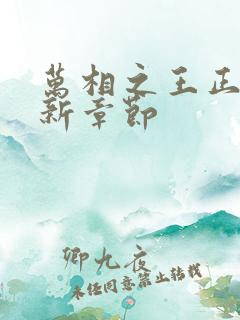 萬相之王正
新章節
卿九夜
未经同意禁止转载